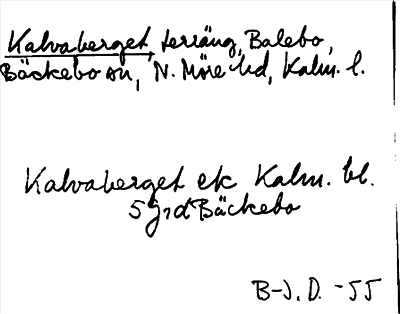 Kalvaberget, terräng, Balebo,
Bäckebo sn, N. Möre hd, Kalm. l.
Kalvaberget ek Kalm. bl.
5 g, d Bäckebo
B-J. D. -55